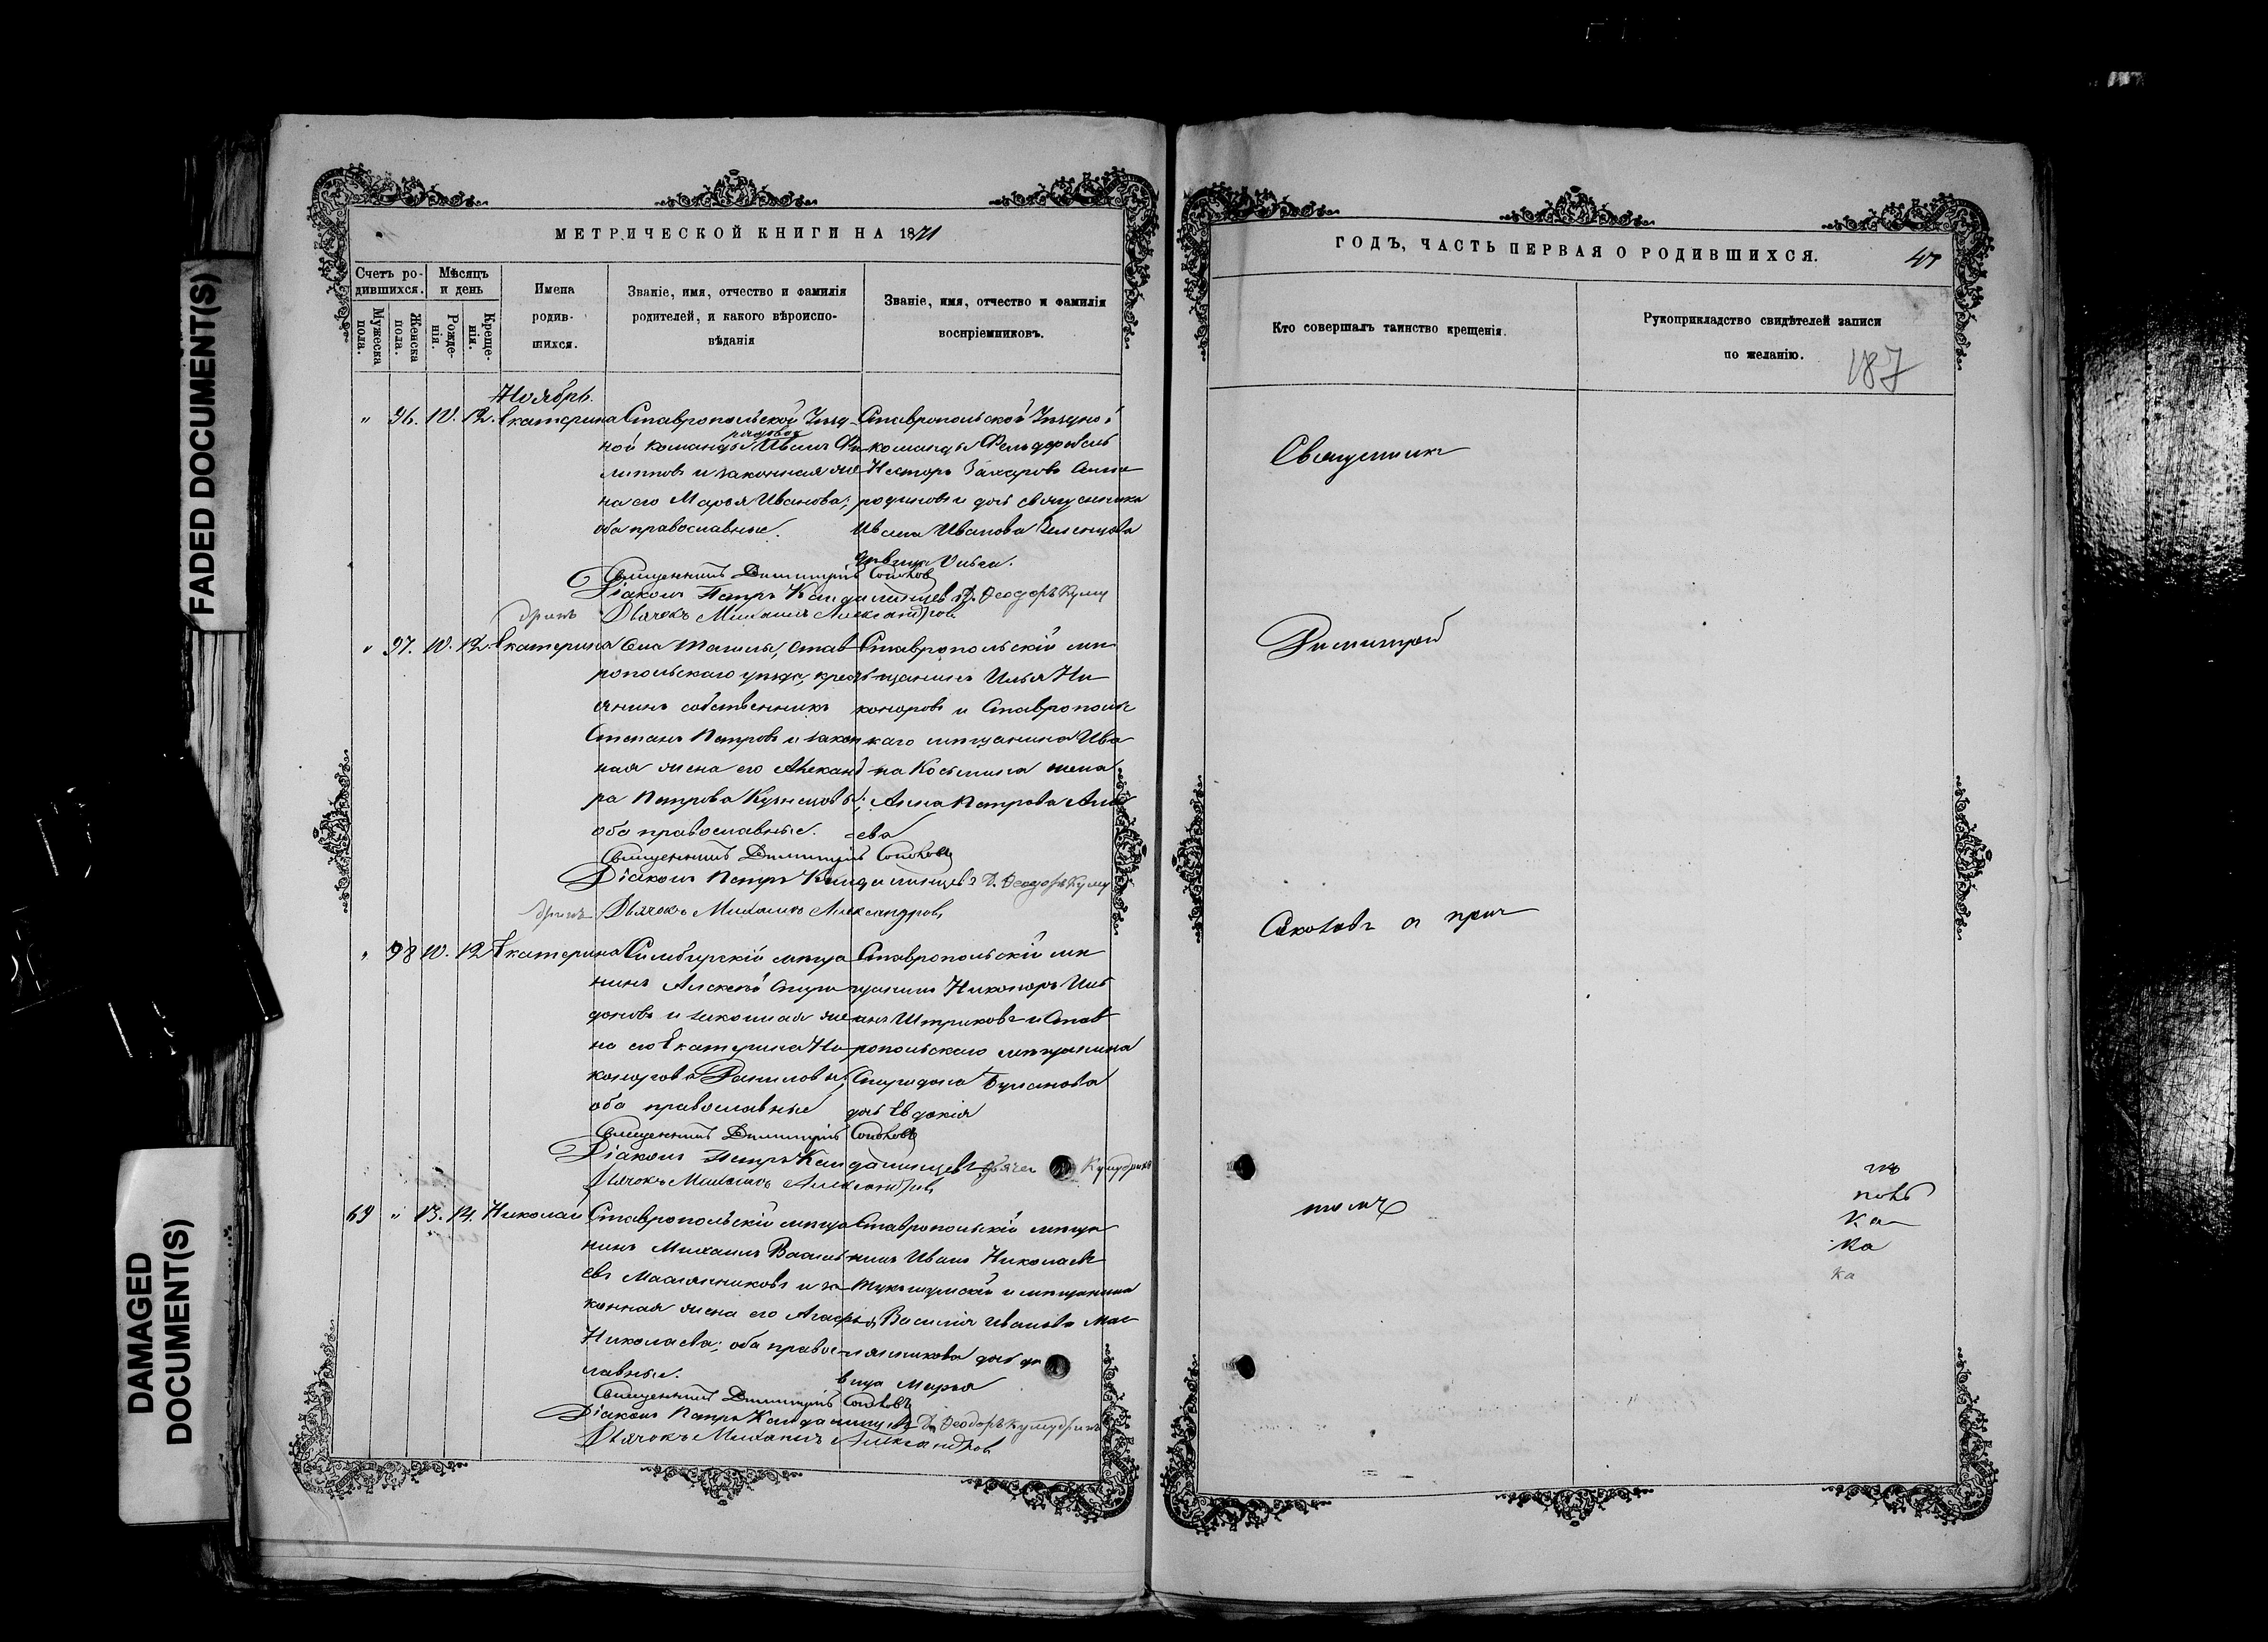 FADED DOCUMENT(S)
DAMAGED
DOCUMENT(S)
МЕТРИЧЕСКОЙ КНИГИ НА 1871
Счетъ ро-
дившихся.
Мужеска
пола.
Женска
пола.
Мѣсяцъ
и день
Рожде-
нія.
Креще-
нія.
Имена
родив-
шихся.
Званіе, имя, отчество и фамилія
родителей, и какого вѣроиспо-
вѣданія
Званіе, имя, отчество и фамилія
воспріемниковъ.
Ноябрь.
" 96. 10. 12. Екатерина
Ставропольской Уѣзд-
рядовой
ной команды Иванъ Фи-
липповъ и законная же-
на его Марья Иванова;
оба православные.
Ставропольской Уѣздной
команды Фельдфебель
Несторъ Захаровъ
и дочь священника
Ивана Иванова
дѣвица Ольга.
Священникъ Димитрій Соколовъ
Діаконъ Петръ Кандалинцевъ Д. Ѳеодоръ Куму
дринъ Дьячокъ Михаилъ Александровъ
" 97. 10. 12. Екатерина
Села Ташлы, Став-
ропольскаго уѣзда, кресть-
янинъ собственникъ
Степанъ Петровъ и закон-
ная жена его Александ-
ра Петрова Кузнецовы;
оба православные.
Ставропольскій мѣ-
щанинъ Илья Ни-
коноровъ и Ставрополь-
скаго мѣщанина Ива-
на Косьмина жена
Анна Петрова
Священникъ Димитрій Соколовъ
Діаконъ Петръ Кандалинцевъ Д. Ѳеодоръ Куму
дринъ Дьячокъ Михаилъ Александровъ
" 98 10. 12 Екатерина
Симбирскій мѣща-
нинъ Алексѣй Спири-
доновъ и законная же-
на его Екатерина Ни-
конорова Даниловы;
оба православные
Ставропольскій мѣ-
щанинъ Никоноръ
Штриковъ и Став-
ропольскаго мѣщанина
Спиридона
дочь Евдокія
Священникъ Димитрій Соколовъ
Діаконъ Петръ Кандалинцевъ Дьячек Кумудринъ
Дьячокъ Михаилъ Александровъ
69 " 13. 14. Николай
Ставропольскій мѣща-
нинъ Михаилъ Василь-
евъ Масленниковъ и за-
конная жена его Агафья
Николаева; оба правос-
лавные.
Ставропольскій мѣща-
нинъ Иванъ Николаевъ
и мѣщанина
Василія Иванова Мас-
ленникова дочь дѣ
вица Марья
Священникъ Димитрій Соколовъ
Діаконъ Петръ Кандалинцевъ Д. Ѳеодоръ Кумудринъ
Дьячокъ Михаилъ Александровъ
ГОДЪ, ЧАСТЬ ПЕРВАЯ О РОДИВШИХСЯ.
47
Кто совершалъ таинство крещенія.
Рукоприкладство свидѣтелей записи
по желанію.
187
Священникъ
Димитрій
Соколовъ съ прич
томъ
повѣ
ка
ка
ка